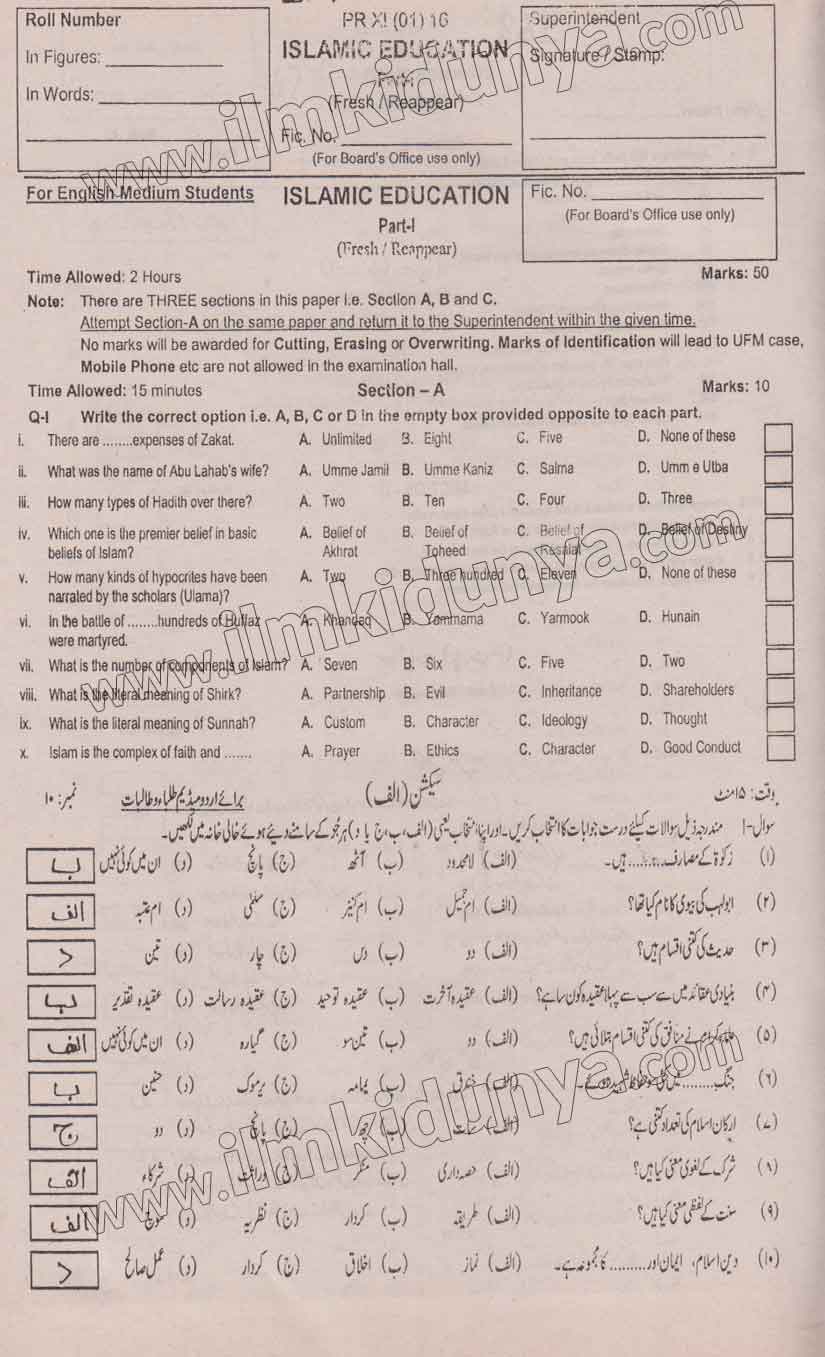 Roll Number
In Figures:
In Words:
PR XI (01) 16
ISLAMIC EDUCATION
(Fresh / Reappear)
Fic. No.
(For Board's Office use only)
Superintendent
Signature / Stamp:
www.ilmkidunya.com
For English Medium Students
ISLAMIC EDUCATION
Part-I
(Fresh / Reappear)
Fic. No.
(For Board's Office use only)
Time Allowed: 2 Hours Marks: 50
Note: There are THREE sections in this paper i.e. Section A, B and C.
Attempt Section-A on the same paper and return it to the Superintendent within the given time.
No marks will be awarded for Cutting, Erasing or Overwriting. Marks of Identification will lead to UFM case,
Mobile Phone etc are not allowed in the examination hall.
Time Allowed: 15 minutes Section – A Marks: 10
Q-I Write the correct option i.e. A, B, C or D in the empty box provided opposite to each part.
i. There are ........expenses of Zakat. A. Unlimited B. Eight C. Five D. None of these
ii. What was the name of Abu Lahab's wife? A. Umme Jamil B. Umme Kaniz C. Salma D. Umm e Utba
iii. How many types of Hadith over there? A. Two B. Ten C. Four D. Three
iv. Which one is the premier belief in basic A. Belief of B. Belief of C. Belief of D. Belief of Destiny
beliefs of Islam? Akhrat Toheed Resalat
v. How many kinds of hypocrites have been A. Two B. Three hundred C. Eleven D. None of these
narrated by the scholars (Ulama)?
vi. In the battle of ........hundreds of Huffaz A. Khandaq B. Yammama C. Yarmook D. Hunain
were martyred.
vii. What is the number of components of Islam? A. Seven B. Six C. Five D. Two
viii. What is the literal meaning of Shirk? A. Partnership B. Evil C. Inheritance D. Shareholders
ix. What is the literal meaning of Sunnah? A. Custom B. Character C. Ideology D. Thought
x. Islam is the complex of faith and ....... A. Prayer B. Ethics C. Character D. Good Conduct
www.ilmkidunya.com
وقت: ۱۵ منٹ سیکشن (الف) برائے اردو میڈیم طلباء و طالبات نمبر: ۱۰
سوال-۱ مندرجہ ذیل سوالات کیلئے درست جوابات کا انتخاب کریں۔ اور اپنا انتخاب یعنی (الف، ب، ج یا د) ہر جُز کے سامنے دیئے ہوئے خالی خانہ میں لکھیں۔
(۱) زکوٰۃ کے مصارف ........ ہیں۔ (الف) لامحدود (ب) آٹھ (ج) پانچ (د) ان میں کوئی نہیں ب
(۲) ابولہب کی بیوی کا نام کیا تھا؟ (الف) ام جمیل (ب) ام کنیز (ج) سلمٰی (د) ام عتبہ الف
(۳) حدیث کی کتنی اقسام ہیں؟ (الف) دو (ب) دس (ج) چار (د) تین د
(۴) بنیادی عقائد میں سے سب سے پہلا عقیدہ کون سا ہے؟ (الف) عقیدہ آخرت (ب) عقیدہ توحید (ج) عقیدہ رسالت (د) عقیدہ تقدیر ب
(۵) علماء کرام نے منافق کی کتنی اقسام بتلائی ہیں؟ (الف) دو (ب) تین سو (ج) گیارہ (د) ان میں کوئی نہیں الف
(۶) جنگ ........ میں کئی سو حفاظ شہید ہوئے۔ (الف) خندق (ب) یمامہ (ج) یرموک (د) حنین ب
(۷) ارکان اسلام کی تعداد کتنی ہے؟ (الف) سات (ب) چھ (ج) پانچ (د) دو ج
(۸) شرک کے لغوی معنی کیا ہیں؟ (الف) حصہ داری (ب) منکر (ج) وراثت (د) شرکاء الف
(۹) سنت کے لفظی معنی کیا ہیں؟ (الف) طریقہ (ب) کردار (ج) نظریہ (د) سوچ الف
(۱۰) دین اسلام، ایمان اور ......... کا مجموعہ ہے۔ (الف) نماز (ب) اخلاق (ج) کردار (د) عمل صالح د
www.ilmkidunya.com